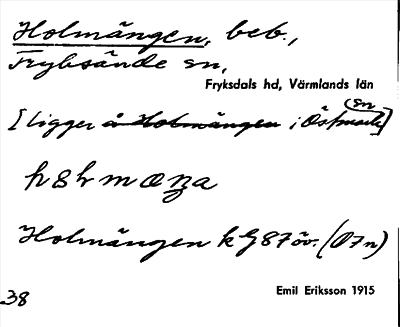 Holmängen, beb.,
Fryksände sn,
Fryksdals hd, Värmlands län
[ligger å Holmängen i Östmark sn]
Holmängen k G87 öv. (Ö7n)
Emil Eriksson 1915
38